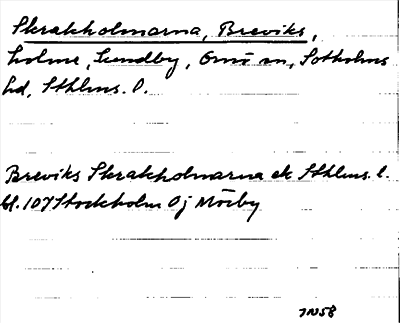 Skrakholmarna, Breviks,
holme, Sundby, Ornö sn, Sotholms
hd, Sthlms. l.
Breviks Skrakholmarna ek Sthlms. l.
bl. 107 Stockholm Oj Mörby
JN58